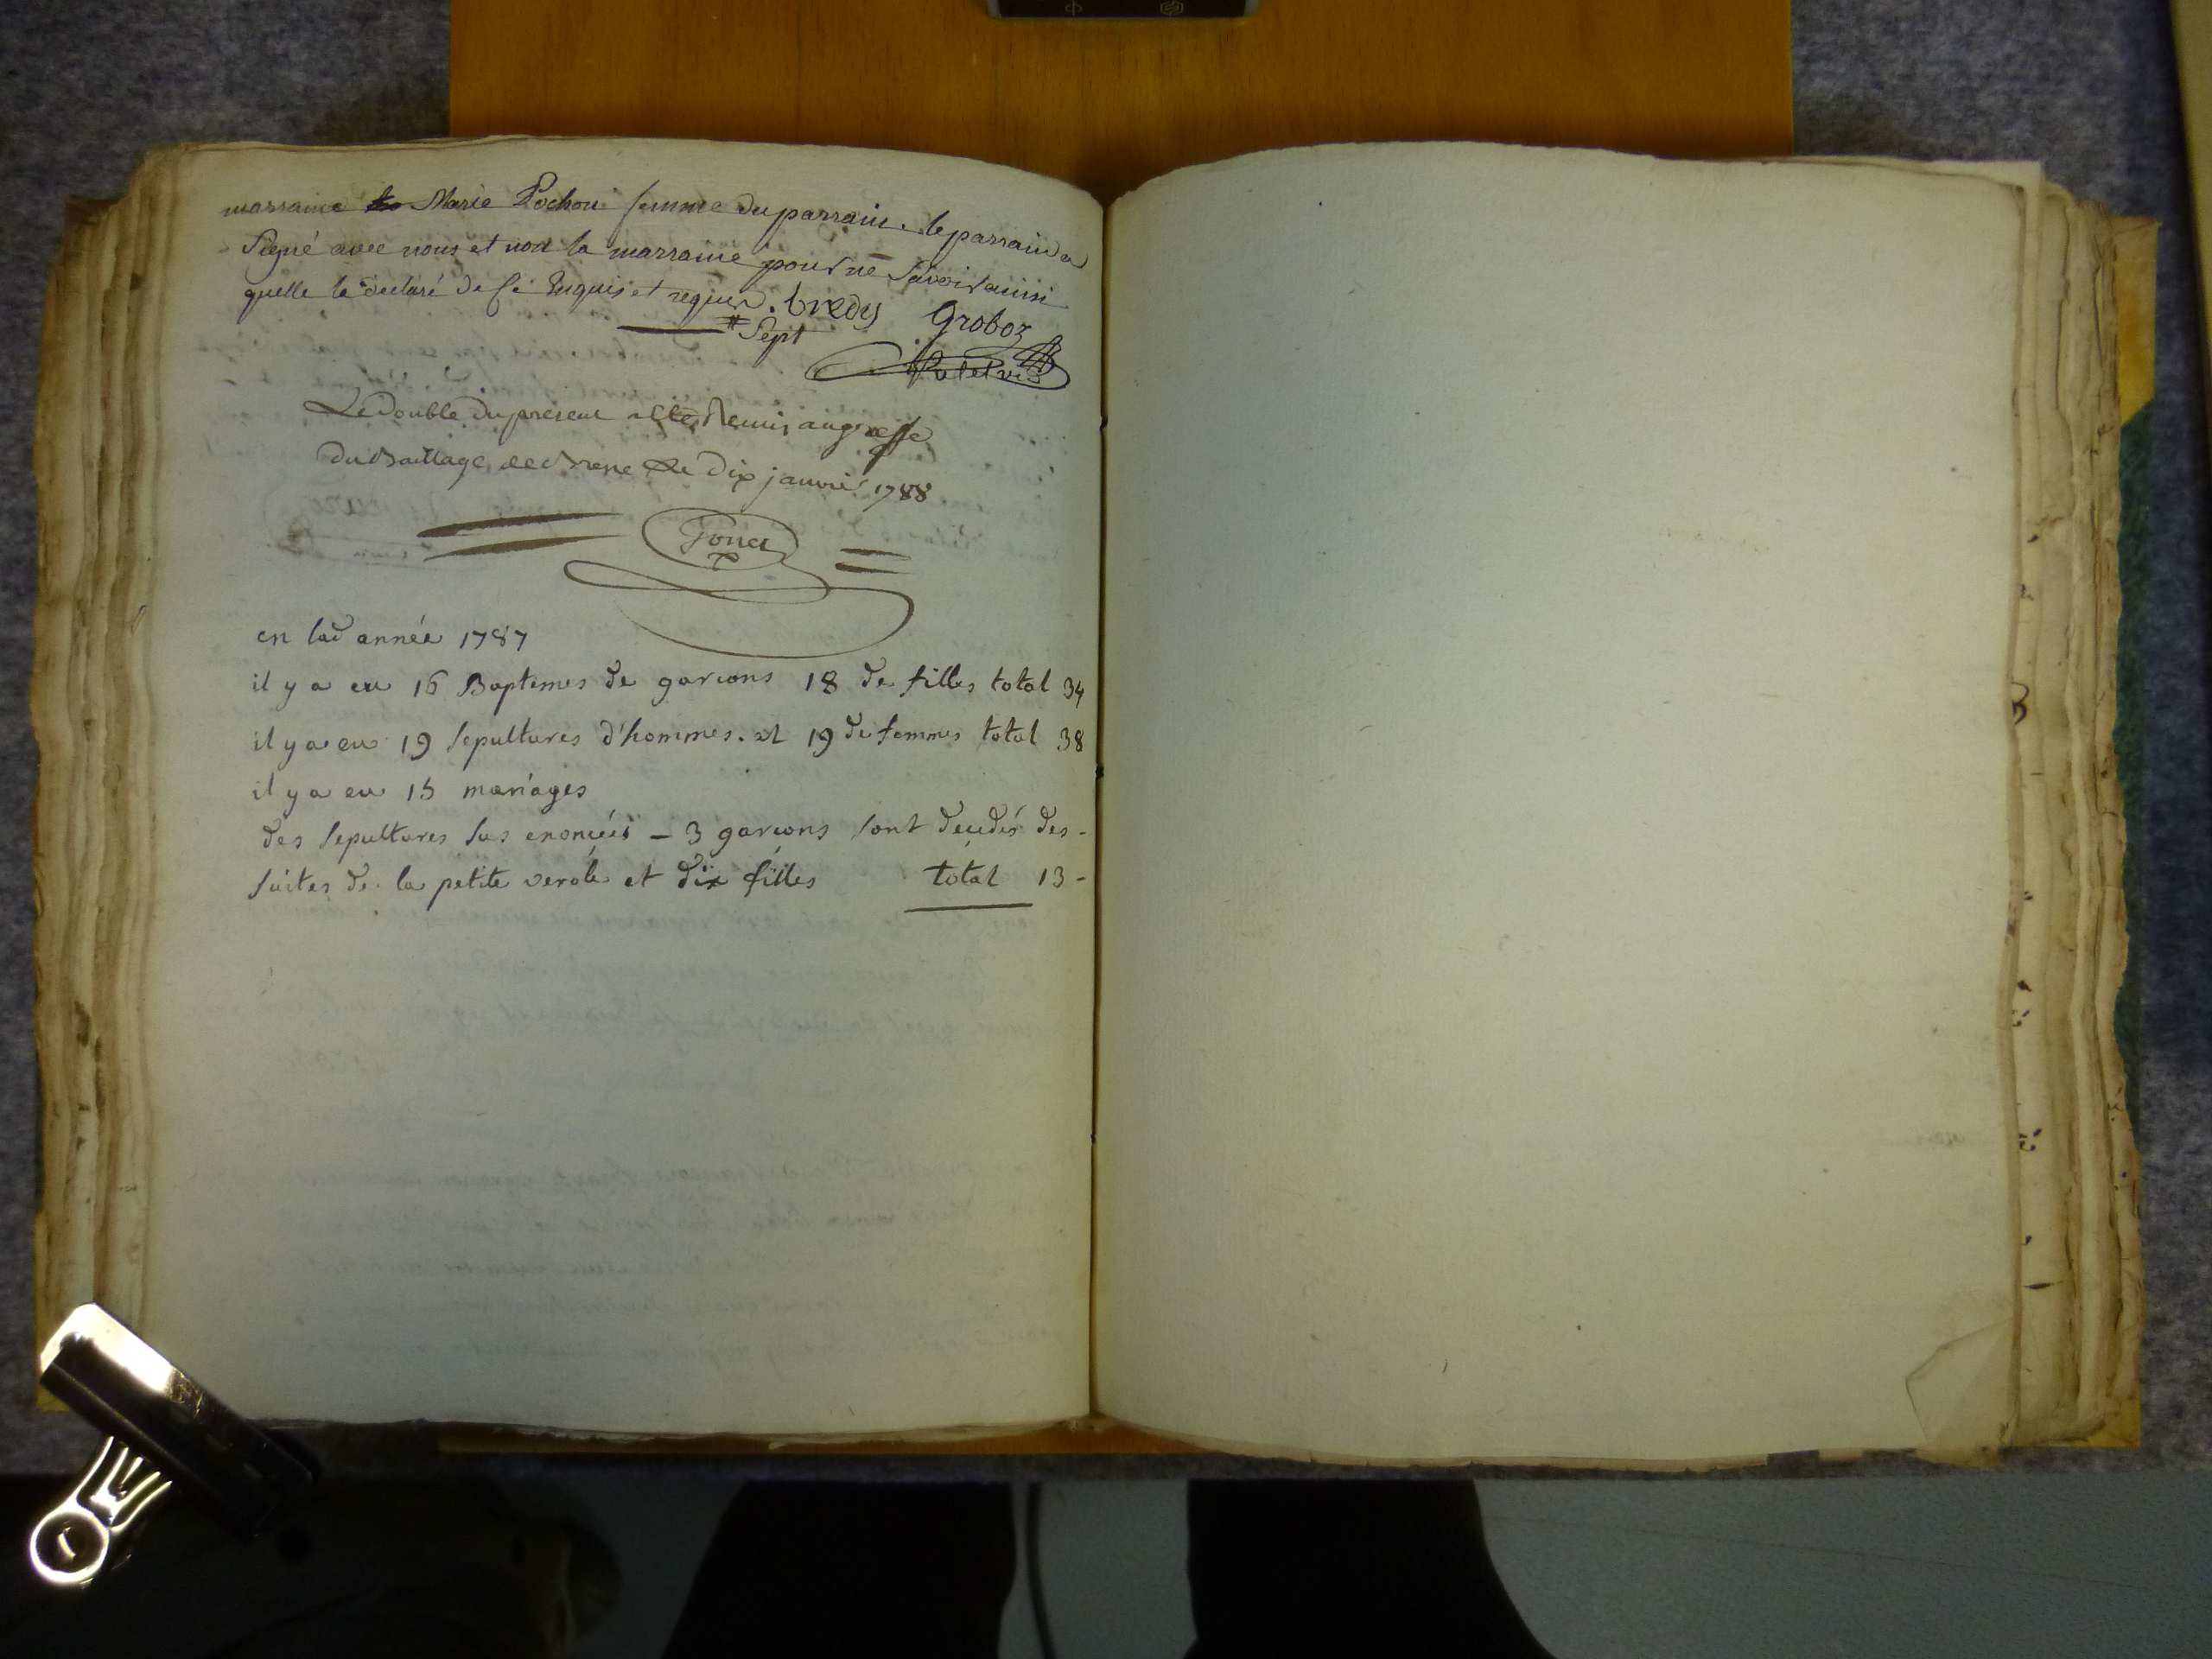 marraine Marie Pochon femme du parrain. le parrain a
signé avec nous et non la marraine pour ne savoir ainsi
quelle la déclaré de ce Enquis et requis. bredy Groboz
Sept
Le double du present a été Remis au greffe
du Bailliage de Bresse Le Dix janvier 1788
en lad année 1787
il y a eu 16 Baptemes de garcons 18 de filles total 34
il y a eu 19 sepultures d'hommes. et 19 de femmes total 38
il y a eu 15 mariages
des sepultures sus enoncées - 3 garcons sont decedés des -
suites de la petite verole et dix filles total 13 -